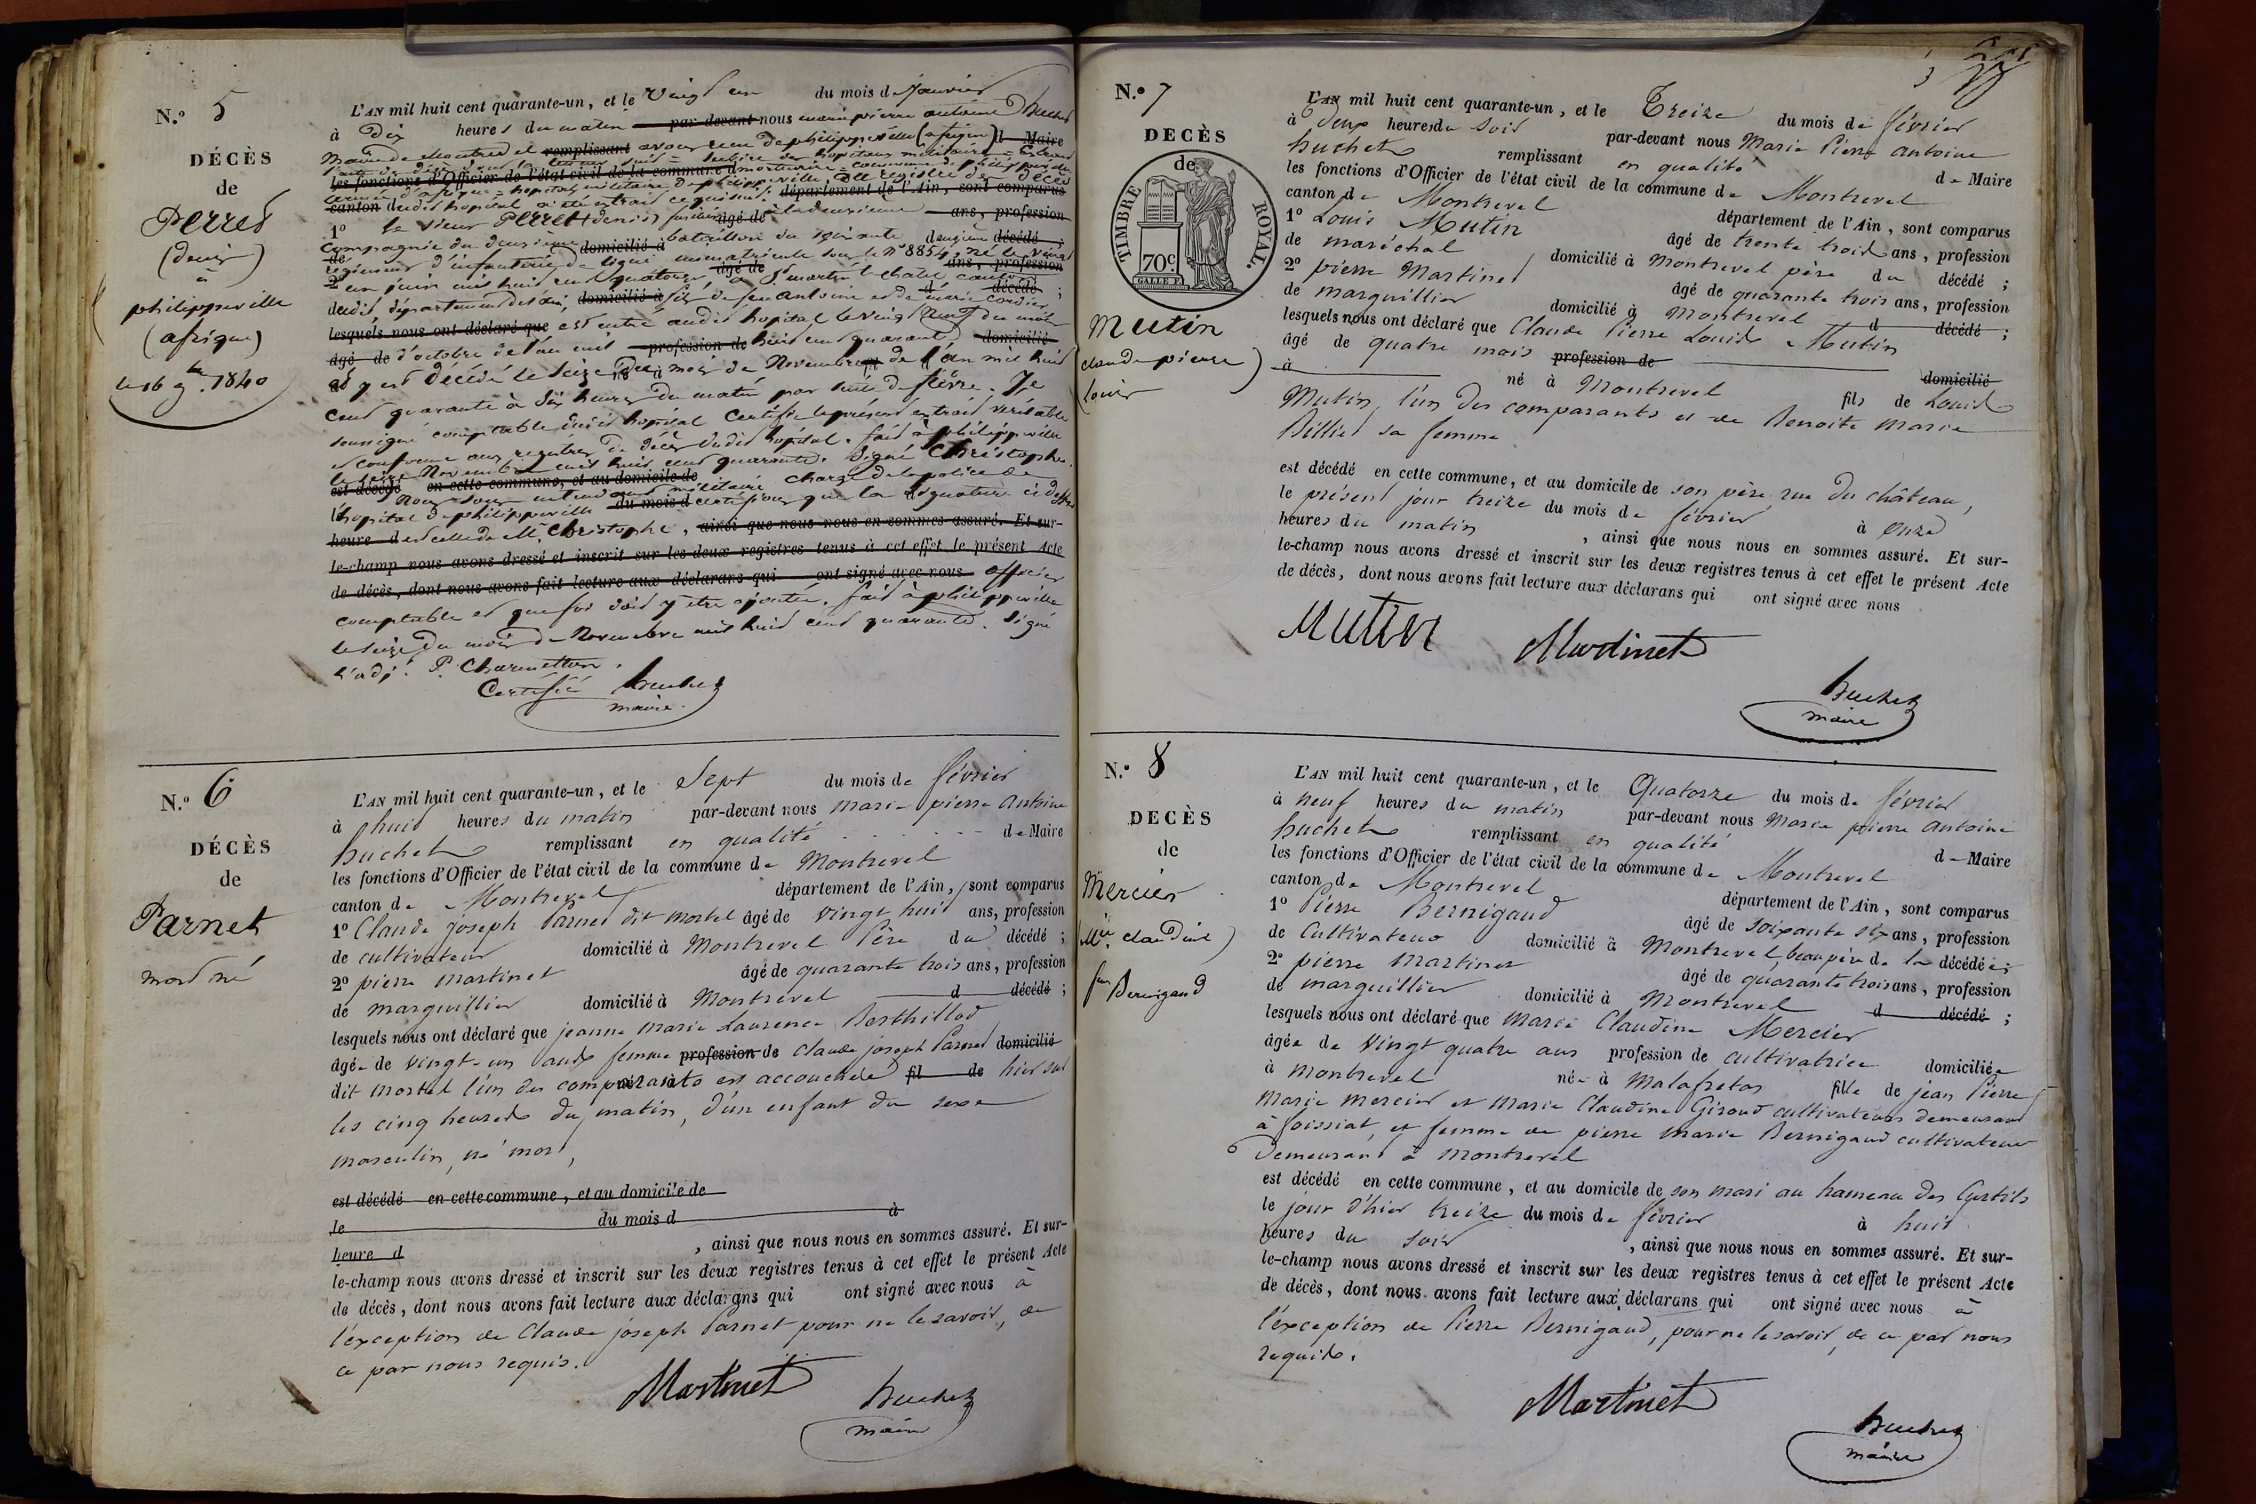 N.o 5
DÉCÈS
de
Perret
(denis)
à
philippeville
(afrique)
le 16 9bre 1840
L'AN mil huit cent quarante-un, et le Vingt un du mois de Janvier
à Dix heures du matin par-devant nous marie pierre antoine Huchet
Maire de Montrevel remplissant avons reçu de philippeville (afrique) d Maire
les fonctions d'Officier de l'état civil de la commune d
canton dudit hopital a été extrait ce qui suit. département de l'Ain, sont comparus
1o le sieur Perret (denis) fusilier âgé de à la deuxième ans, profession
compagnie du deuxième domicilié à bataillon du soixante deuxième décédé ;
régiment d'infanterie de ligne immatriculé sous le No 8854, né le vingt
2o un juin mil huit cent quatorze âgé de à St martin le chatel canton ans, profession
dudit, département de l'ain, domicilié à fils de feu antoine et de marie cordier d décédé ;
lesquels nous ont déclaré que est entré audit hopital le vingt neuf du mois
âgé de d'octobre de l'an mil profession de huit cent quarante domicilié
et y est décédé le seize du mois de Novembre de l'an mil huit
cent quarante à six heures du matin par suite de fièvre. Je
soussigné comptable dudit hopital certifie le présent extrait véritable
et conforme aux registres de décès dudit hopital. fait à philippeville
le seize Novembre mil huit cent quarante. Signé Christophe.
est décédé en cette commune, et au domicile de
Nous sous intendant militaire chargé de la police de
l'hopital de philippeville du mois d certifions que la signature ci dessus
heure d est celle de Mr Christophe, ainsi que nous nous en sommes assuré. Et sur-
le-champ nous avons dressé et inscrit sur les deux registres tenus à cet effet le présent Acte
de décès, dont nous avons fait lecture aux déclarans qui ont signé avec nous officier
comptable et que foi doit y être ajoutée. fait à philippeville
le seize du mois de Novembre mil huit cent quarante. Signé
l'adjt P. Charmetton.
Certifié huchet
maire.
N.o 6
DÉCÈS
de
Parnet
mort né
L'AN mil huit cent quarante-un, et le Sept du mois de février
à huit heures du matin par-devant nous marie pierre antoine
huchet remplissant en qualité de Maire
les fonctions d'Officier de l'état civil de la commune de Montrevel
canton de Montrevel département de l'Ain, sont comparus
1o Claude joseph Parnet dit mortel âgé de vingt huit ans, profession
de cultivateur domicilié à Montrevel Père du décédé ;
2o pierre martinet âgé de quarante trois ans, profession
de marguillier domicilié à Montrevel d décédé ;
lesquels nous ont déclaré que jeanne marie Laurence Berthillod
âgée de vingt-un ans femme profession de Claude joseph Parnet domicilié
dit mortel l'un des comparants né à est accouchée fil de hier sur
les cinq heures du matin, d'un enfant du sexe
masculin, né mort,
est décédé en cette commune, et au domicile de
le du mois d à
heure d , ainsi que nous nous en sommes assuré. Et sur-
le-champ nous avons dressé et inscrit sur les deux registres tenus à cet effet le présent Acte
de décès, dont nous avons fait lecture aux déclarans qui ont signé avec nous à
l'exception de Claude joseph Parnet pour ne le savoir, de
ce par nous requis.
Martinet
huchet
maire
N.o 7
DECÈS
de
TIMBRE ROYAL.
70c.
Mutin
claude pierre
louis
L'AN mil huit cent quarante-un, et le Treize du mois de février
à Deux heures du soir par-devant nous Marie Pierre antoine
huchet remplissant en qualité de Maire
les fonctions d'Officier de l'état civil de la commune de Montrevel
canton de Montrevel département de l'Ain, sont comparus
1o Louis Mutin âgé de trente trois ans, profession
de maréchal domicilié à Montrevel père du décédé ;
2o pierre Martinet âgé de quarante trois ans, profession
de marguillier domicilié à Montrevel d décédé ;
lesquels nous ont déclaré que Claude Pierre Louis Mutin
âgé de quatre mois profession de domicilié
à né à Montrevel fils de Louis
Mutin, l'un des comparants et de Benoite Marie
Billiet sa femme
est décédé en cette commune, et au domicile de son père rue du château,
le présent jour treize du mois de février à onze
heures du matin , ainsi que nous nous en sommes assuré. Et sur-
le-champ nous avons dressé et inscrit sur les deux registres tenus à cet effet le présent Acte
de décès, dont nous avons fait lecture aux déclarans qui ont signé avec nous
Mutin
Martinet
huchet
maire
N.o 8
DECÈS
de
Mercier
Mie claudine
fme Bernigaud
L'AN mil huit cent quarante-un, et le Quatorze du mois de février
à neuf heures du matin par-devant nous Marie pierre antoine
huchet remplissant en qualité de Maire
les fonctions d'Officier de l'état civil de la commune de Montrevel
canton de Montrevel département de l'Ain, sont comparus
1o Pierre Bernigaud âgé de soixante six ans, profession
de Cultivateur domicilié à Montrevel, beau père de la décédée ;
2o pierre Martinet âgé de quarante trois ans, profession
de marguillier domicilié à Montrevel d décédé ;
lesquels nous ont déclaré que Marie Claudine Mercier
âgée de Vingt quatre ans profession de cultivatrice domiciliée
à Montrevel née à Malafretaz fille de jean Pierre
Marie mercier et Marie Claudine Giroud cultivateurs demeurant
à foissiat, et femme de pierre Marie Bernigaud cultivateur
Demeurant à Montrevel
est décédé en cette commune, et au domicile de son mari au hameau des Curtils
le jour d'hier treize du mois de février à huit
heures du soir , ainsi que nous nous en sommes assuré. Et sur-
le-champ nous avons dressé et inscrit sur les deux registres tenus à cet effet le présent Acte
de décès, dont nous avons fait lecture aux déclarans qui ont signé avec nous à
l'exception de Pierre Bernigaud, pour ne le savoir, de ce par nous
requis.
Martinet
huchet
maire